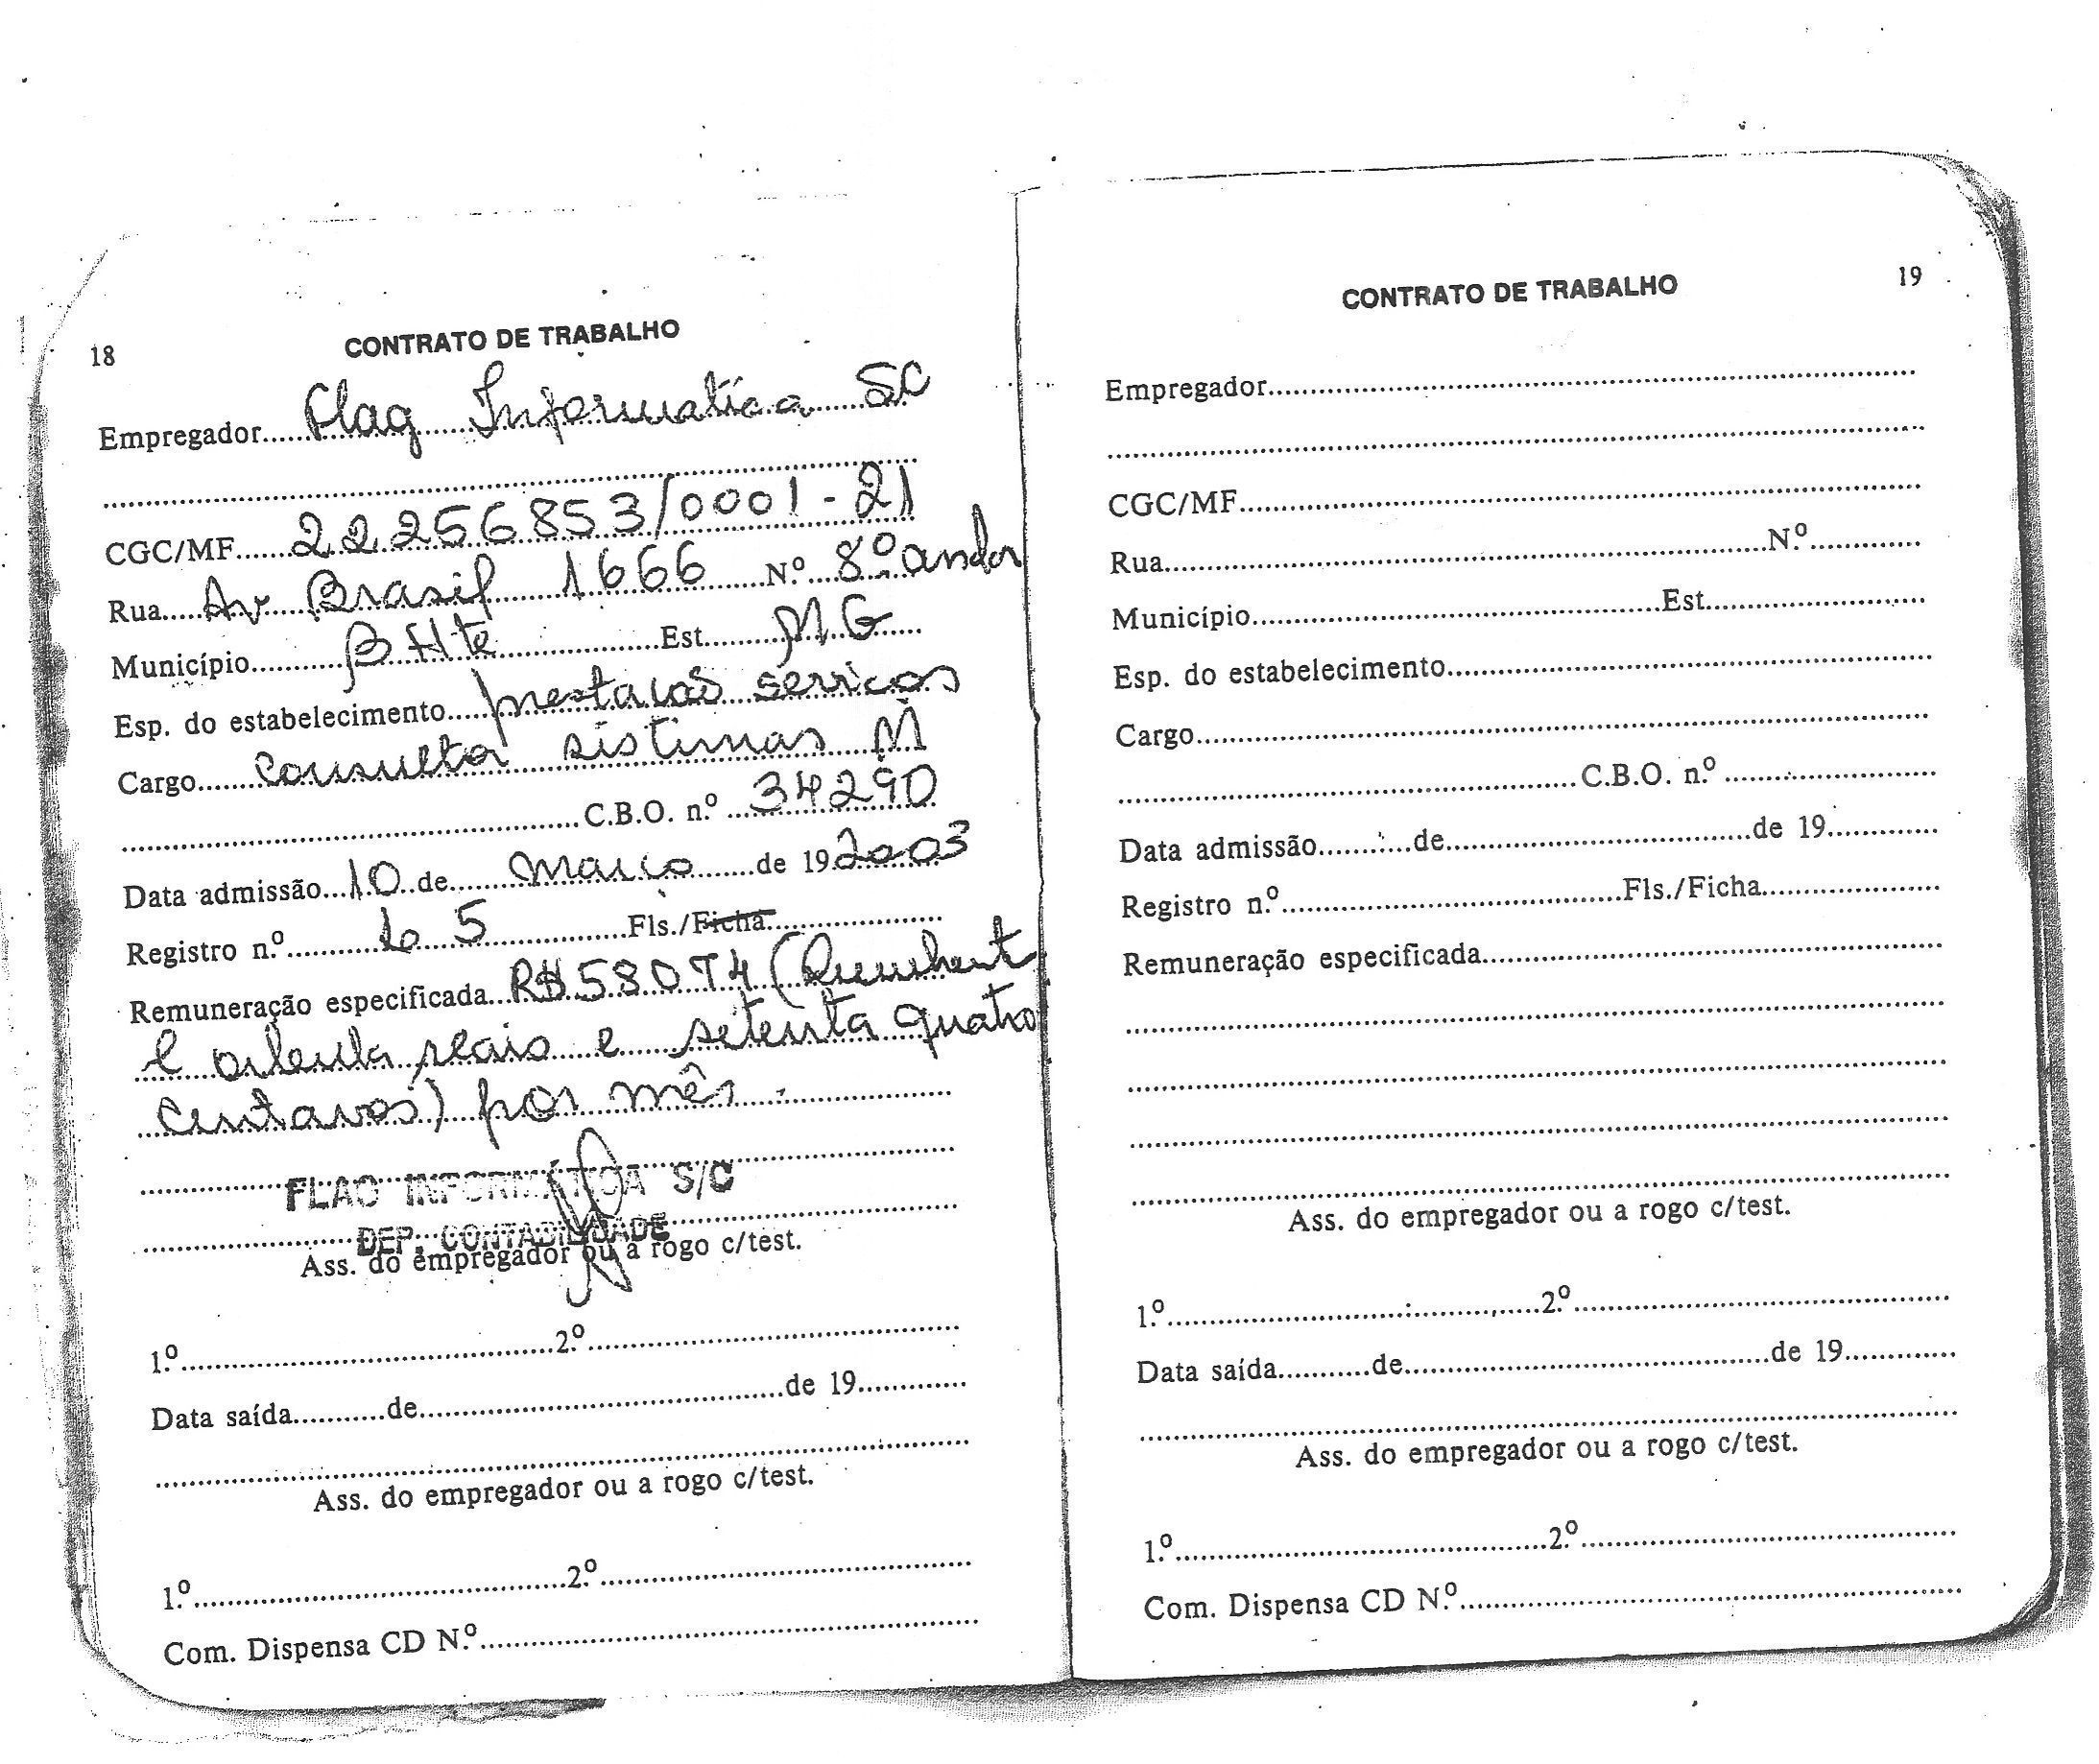 18
CONTRATO DE TRABALHO
Empregador...... Flag Informatica SC
CGC/MF...... 22256853/0001-21
Rua..... Av Brasil 1666 N.º 8º andar
Município........... BHte Est......... MG
Esp. do estabelecimento..... prestacao servicos
Cargo........ consultor sistemas
C.B.O. n.º ... 34290
Data admissão... 10 de...... março ......de 19 2003
Registro n.º........... 65 Fls./Ficha
Remuneração especificada... R$ 580 74 (Quinhent
e oitenta reais e setenta quatro
centavos) por mês.
FLAG INFORMÁTICA S/C
DEP. CONTABILIDADE
Ass. do empregador ou a rogo c/test.
1.º..........2.º..........
Data saída...........de..........de 19.............
Ass. do empregador ou a rogo c/test.
1.º..........2.º..........
Com. Dispensa CD N.º..........
19
CONTRATO DE TRABALHO
Empregador..........
CGC/MF..........
Rua..........N.º..........
Município..........Est..........
Esp. do estabelecimento..........
Cargo..........
C.B.O. n.º ..........
Data admissão..........de..........de 19.............
Registro n.º..........Fls./Ficha..........
Remuneração especificada..........
Ass. do empregador ou a rogo c/test.
1.º..........2.º..........
Data saída...........de..........de 19.............
Ass. do empregador ou a rogo c/test.
1.º..........2.º..........
Com. Dispensa CD N.º..........